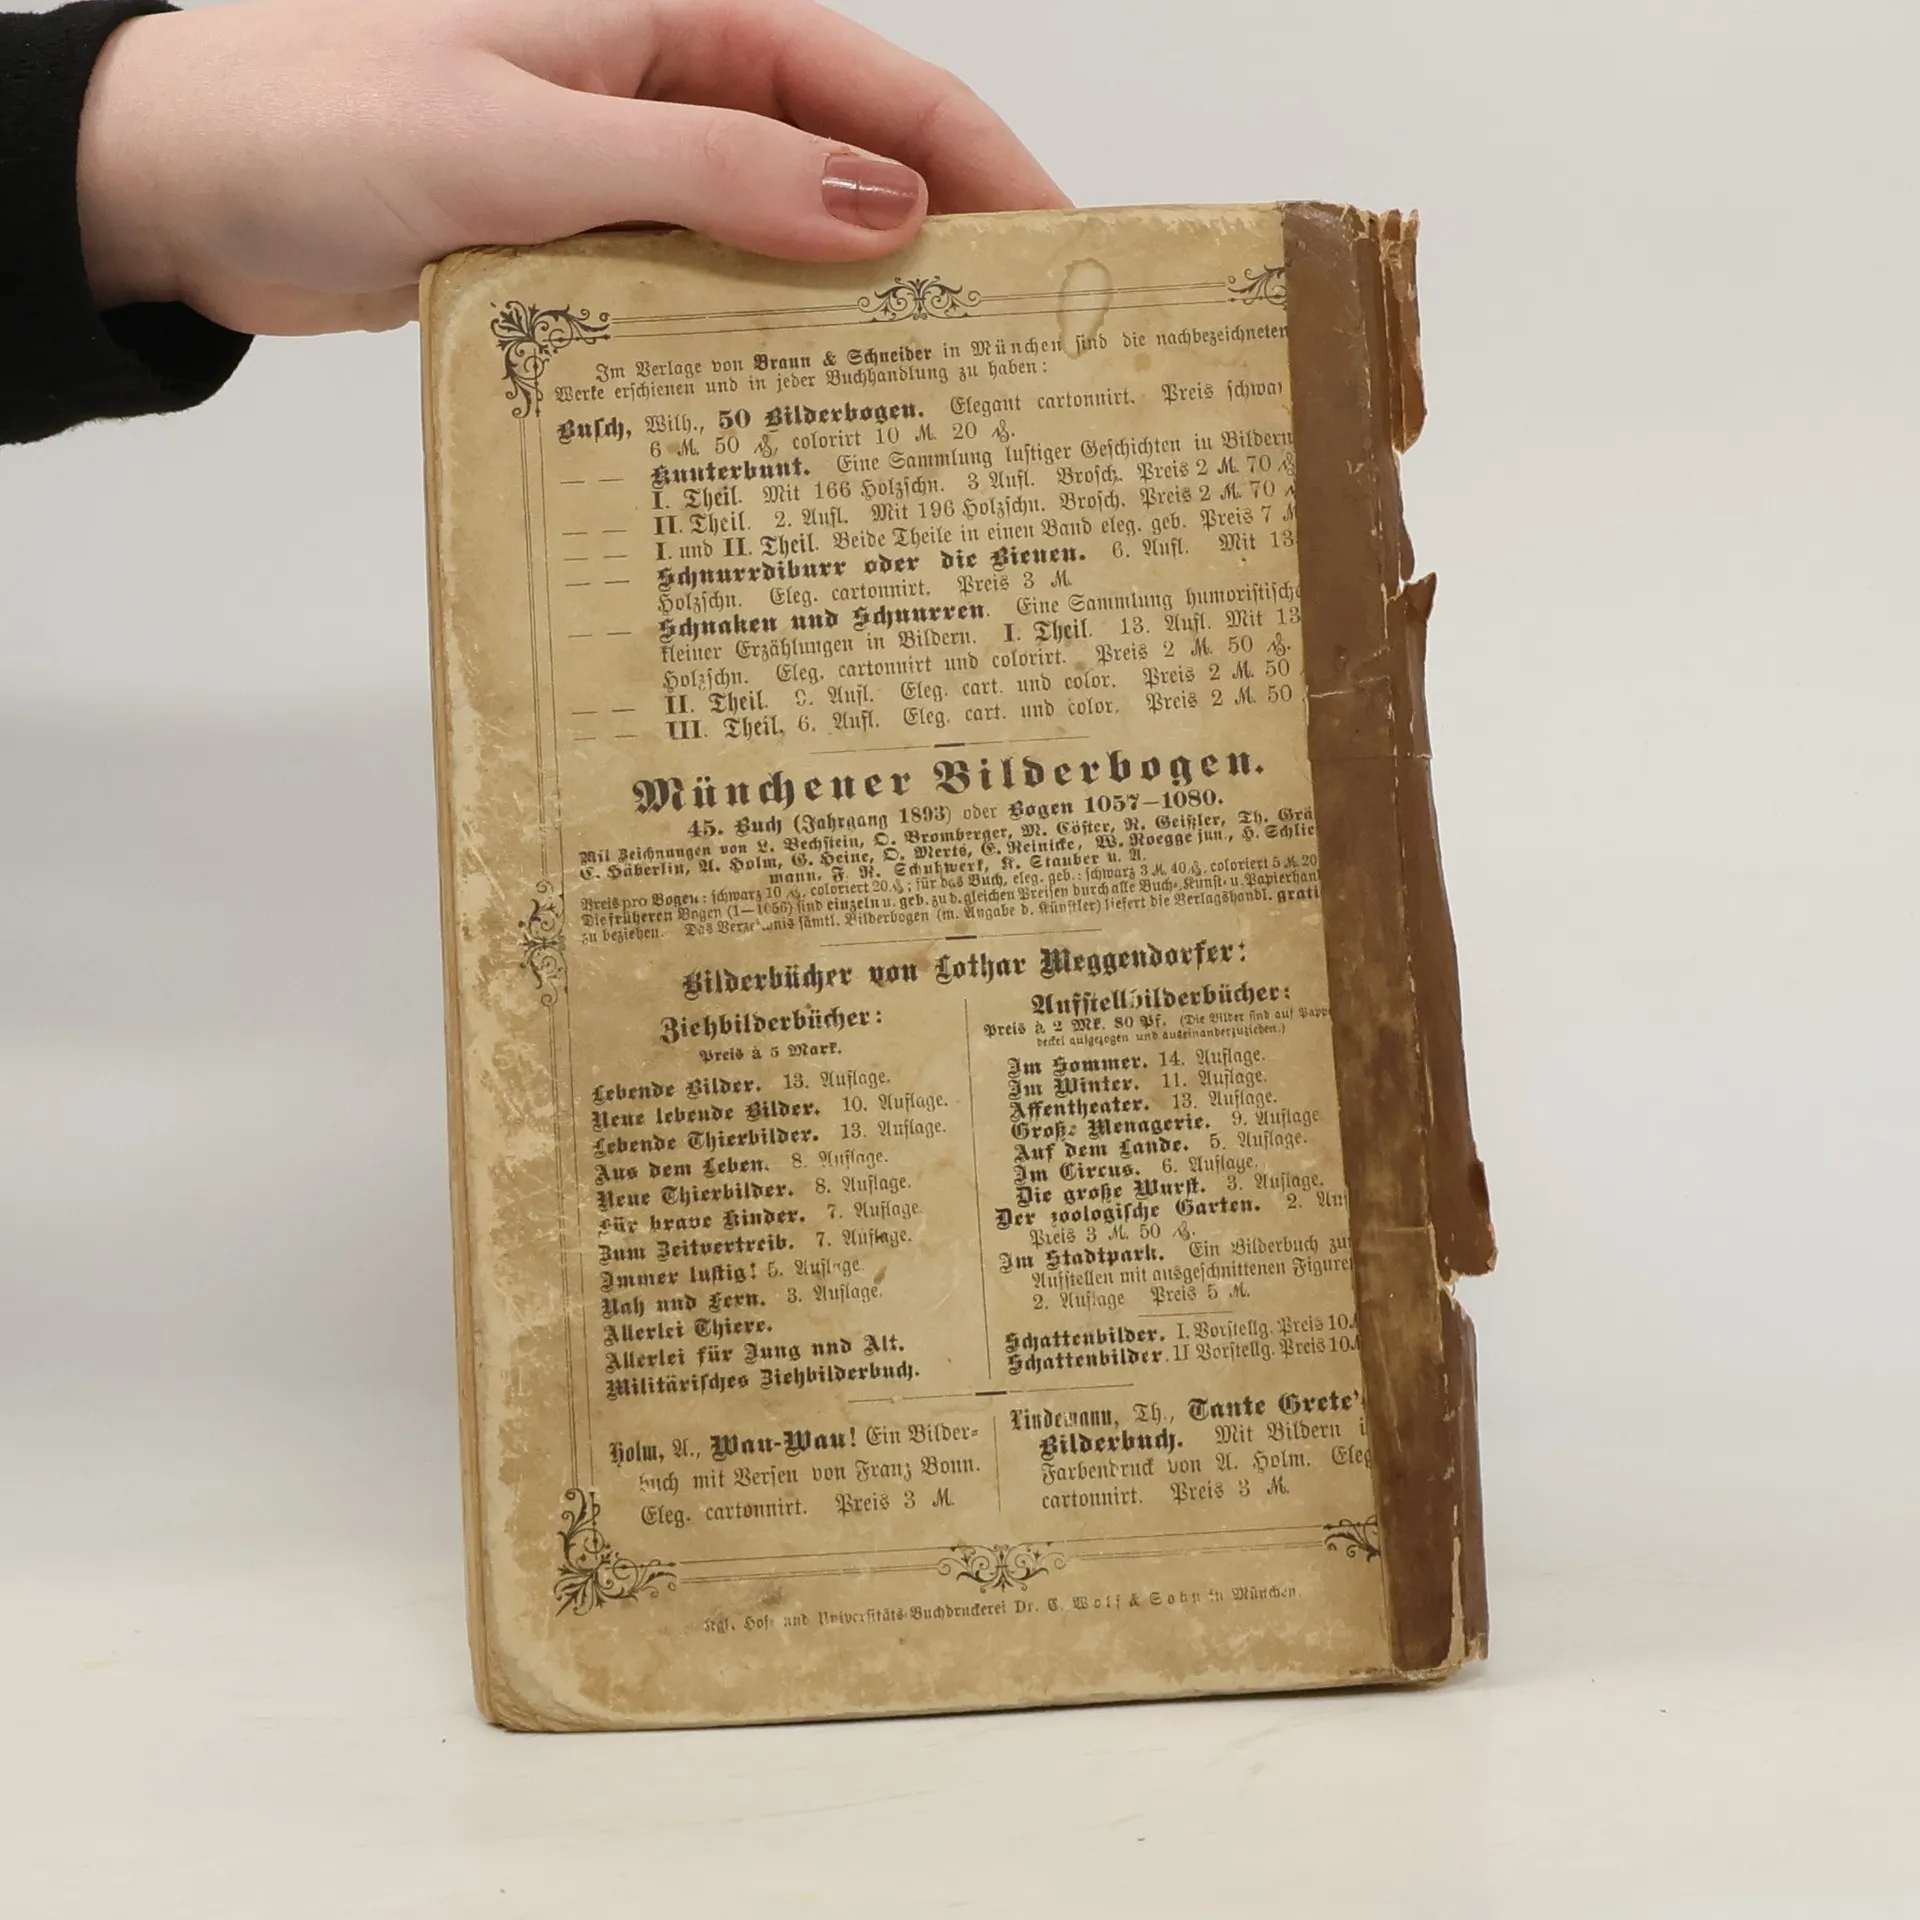 Im Verlage von Braun & Schneider in München sind die nachbezeichneten
Werke erschienen und in jeder Buchhandlung zu haben:
Busch, Wilh., 50 Bilderbogen. Elegant cartonnirt. Preis schwar
6 M. 50 ₰, colorirt 10 M. 20 ₰.
— — Kunterbunt. Eine Sammlung lustiger Geschichten in Bildern
I. Theil. Mit 166 Holzschn. 3 Aufl. Brosch. Preis 2 M. 70 ₰
— — II. Theil. 2. Aufl. Mit 196 Holzschn. Brosch. Preis 2 M. 70
— — I. und II. Theil. Beide Theile in einen Band eleg. geb. Preis 7 M
— — Schnurrdiburr oder die Bienen. 6. Aufl. Mit 13
Holzschn. Eleg. cartonnirt. Preis 3 M.
— — Schnaken und Schnurren. Eine Sammlung humoristische
kleiner Erzählungen in Bildern. I. Theil. 13. Aufl. Mit 13
Holzschn. Eleg. cartonnirt und colorirt. Preis 2 M. 50 ₰.
— — II. Theil. 9. Aufl. Eleg. cart. und color. Preis 2 M. 50
— — III. Theil. 6. Aufl. Eleg. cart. und color. Preis 2 M. 50
Münchener Bilderbogen.
45. Buch (Jahrgang 1893) oder Bogen 1057—1080.
Mit Zeichnungen von L. Bechstein, O. Bromberger, M. Cöster, R. Geißler, Th. Grä
C. Häberlin, A. Holm, G. Heine, O. Merté, E. Reinicke, W. Roegge jun., H. Schlie
mann, F. R. Schuhwerk, K. Stauber u. A.
Preis pro Bogen: schwarz 10 ₰, coloriert 20 ₰; für das Buch, eleg. geb.: schwarz 3 M. 40 ₰, coloriert 5 M. 20
Die früheren Bogen (1—1056) sind einzeln u. geb. zu d. gleichen Preisen durch alle Buch-, Kunst- u. Papierhan
zu beziehen. Das Verzeichnis sämtl. Bilderbogen (m. Angabe d. Künstler) liefert die Verlagshandl. grati
Bilderbücher von Lothar Meggendorfer:
Ziehbilderbücher:
Preis à 5 Mark.
Lebende Bilder. 13. Auflage.
Neue lebende Bilder. 10. Auflage.
Lebende Thierbilder. 13. Auflage.
Aus dem Leben. 8. Auflage.
Neue Thierbilder. 8. Auflage.
Für brave Kinder. 7. Auflage
Zum Zeitvertreib. 7. Auflage.
Immer lustig! 5. Auflage.
Nah und Fern. 3. Auflage.
Allerlei Thiere.
Allerlei für Jung und Alt.
Militärisches Ziehbilderbuch.
Aufstellbilderbücher:
Preis à 2 Mk. 80 Pf. (Die Bilder sind auf Papp
deckel aufgezogen und auseinanderzuziehen.)
Im Sommer. 14. Auflage.
Im Winter. 11. Auflage.
Affentheater. 13. Auflage.
Große Menagerie. 9. Auflage
Auf dem Lande. 5. Auflage.
Im Circus. 6. Auflage.
Die große Wurst. 3. Auflage.
Der zoologische Garten. 2. Auf
Preis 3 M. 50 ₰.
Im Stadtpark. Ein Bilderbuch zu
Aufstellen mit ausgeschnittenen Figure
2. Auflage Preis 5 M.
Schattenbilder. I. Vorstellg. Preis 10
Schattenbilder. II Vorstellg. Preis 10
Holm, A., Wau-Wau! Ein Bilder-
buch mit Versen von Franz Bonn.
Eleg. cartonnirt. Preis 3 M.
Lindemann, Th., Tante Grete's
Bilderbuch. Mit Bildern i
Farbendruck von A. Holm. Eleg
cartonnirt. Preis 3 M.
Kgl. Hof- und Universitäts-Buchdruckerei Dr. C. Wolf & Sohn in München.